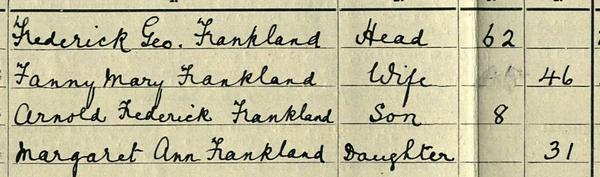 Frederick Geo. Frankland Head 62
Fanny Mary Frankland Wife 46
Arnold Frederick Frankland Son 8
Margaret Ann Frankland Daughter 31